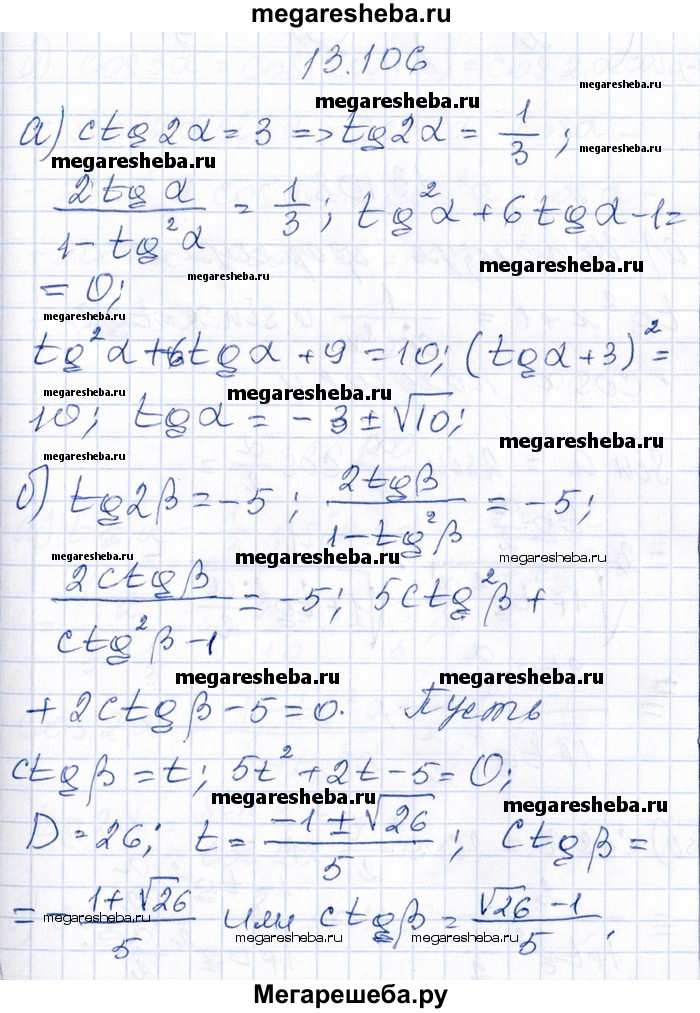 megaresheba.ru
13.106
megaresheba.ru
megaresheba.ru
а) ctg2α = 3 => tg2α = 1/3 ;
megaresheba.ru
megaresheba.ru
2tgα / 1 - tg²α = 1/3 ; tg²α + 6tgα - 1 =
megaresheba.ru
megaresheba.ru
= 0;
megaresheba.ru
tg²α + 6tgα + 9 = 10; (tgα + 3)² =
megaresheba.ru
megaresheba.ru
10; tgα = - 3 ± √10;
megaresheba.ru
megaresheba.ru
б) tg2β = -5 ; 2tgβ / 1 - tg²β = -5;
megaresheba.ru
megaresheba.ru
megaresheba.ru
2ctgβ / ctg²β - 1 = -5; 5ctg²β +
megaresheba.ru
megaresheba.ru
+ 2ctgβ - 5 = 0. Пусть
ctgβ = t; 5t² + 2t - 5 = 0;
megaresheba.ru
megaresheba.ru
D = 26; t = -1 ± √26 / 5 ; ctgβ =
= - 1 + √26 / 5 или ctgβ = √26 - 1 / 5 .
megaresheba.ru
megaresheba.ru
megaresheba.ru
Мегарешеба.ру